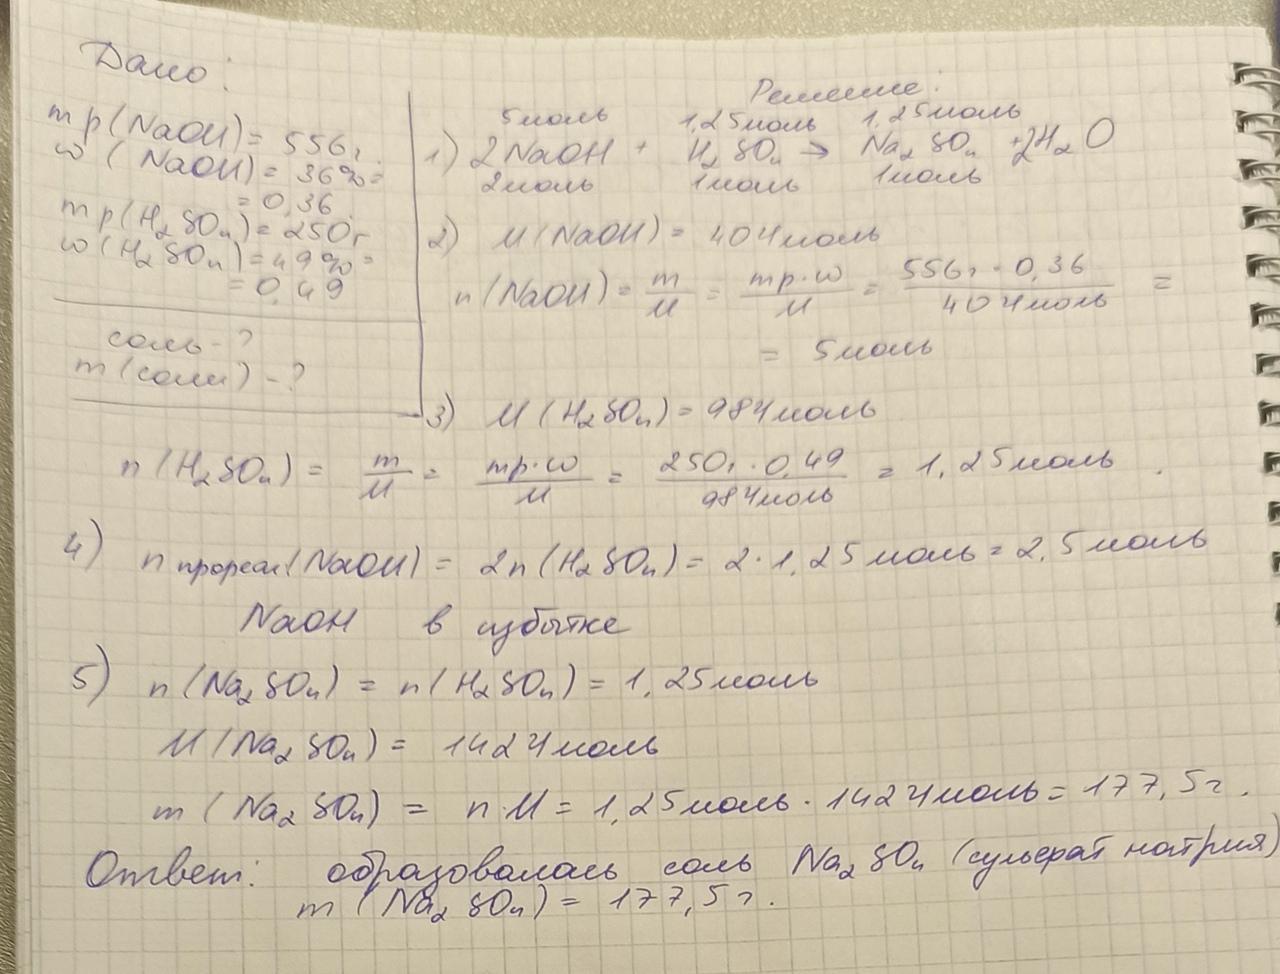 Дано:
mр(NaOH) = 556г
w (NaOH) = 36% =
= 0,36
mр(H₂SO₄) = 250г
w(H₂SO₄) = 49% =
= 0,49
соль - ?
m(соли) - ?
Решение:
5моль 1,25моль 1,25моль
1) 2NaOH + H₂SO₄ → Na₂SO₄ + 2H₂O
2моль 1моль 1моль
2) M(NaOH) = 40г/моль
n(NaOH) = m/M = mр·w/M = 556г·0,36/40г/моль =
= 5моль
3) M(H₂SO₄) = 98г/моль
n(H₂SO₄) = m/M = mр·w/M = 250г·0,49/98г/моль = 1,25моль
4) n прореаг(NaOH) = 2n(H₂SO₄) = 2·1,25моль = 2,5моль
NaOH в избытке
5) n(Na₂SO₄) = n(H₂SO₄) = 1,25моль
M(Na₂SO₄) = 142г/моль
m(Na₂SO₄) = n·M = 1,25моль·142г/моль = 177,5г.
Ответ: образовалась соль Na₂SO₄ (сульфат натрия)
m(Na₂SO₄) = 177,5г.